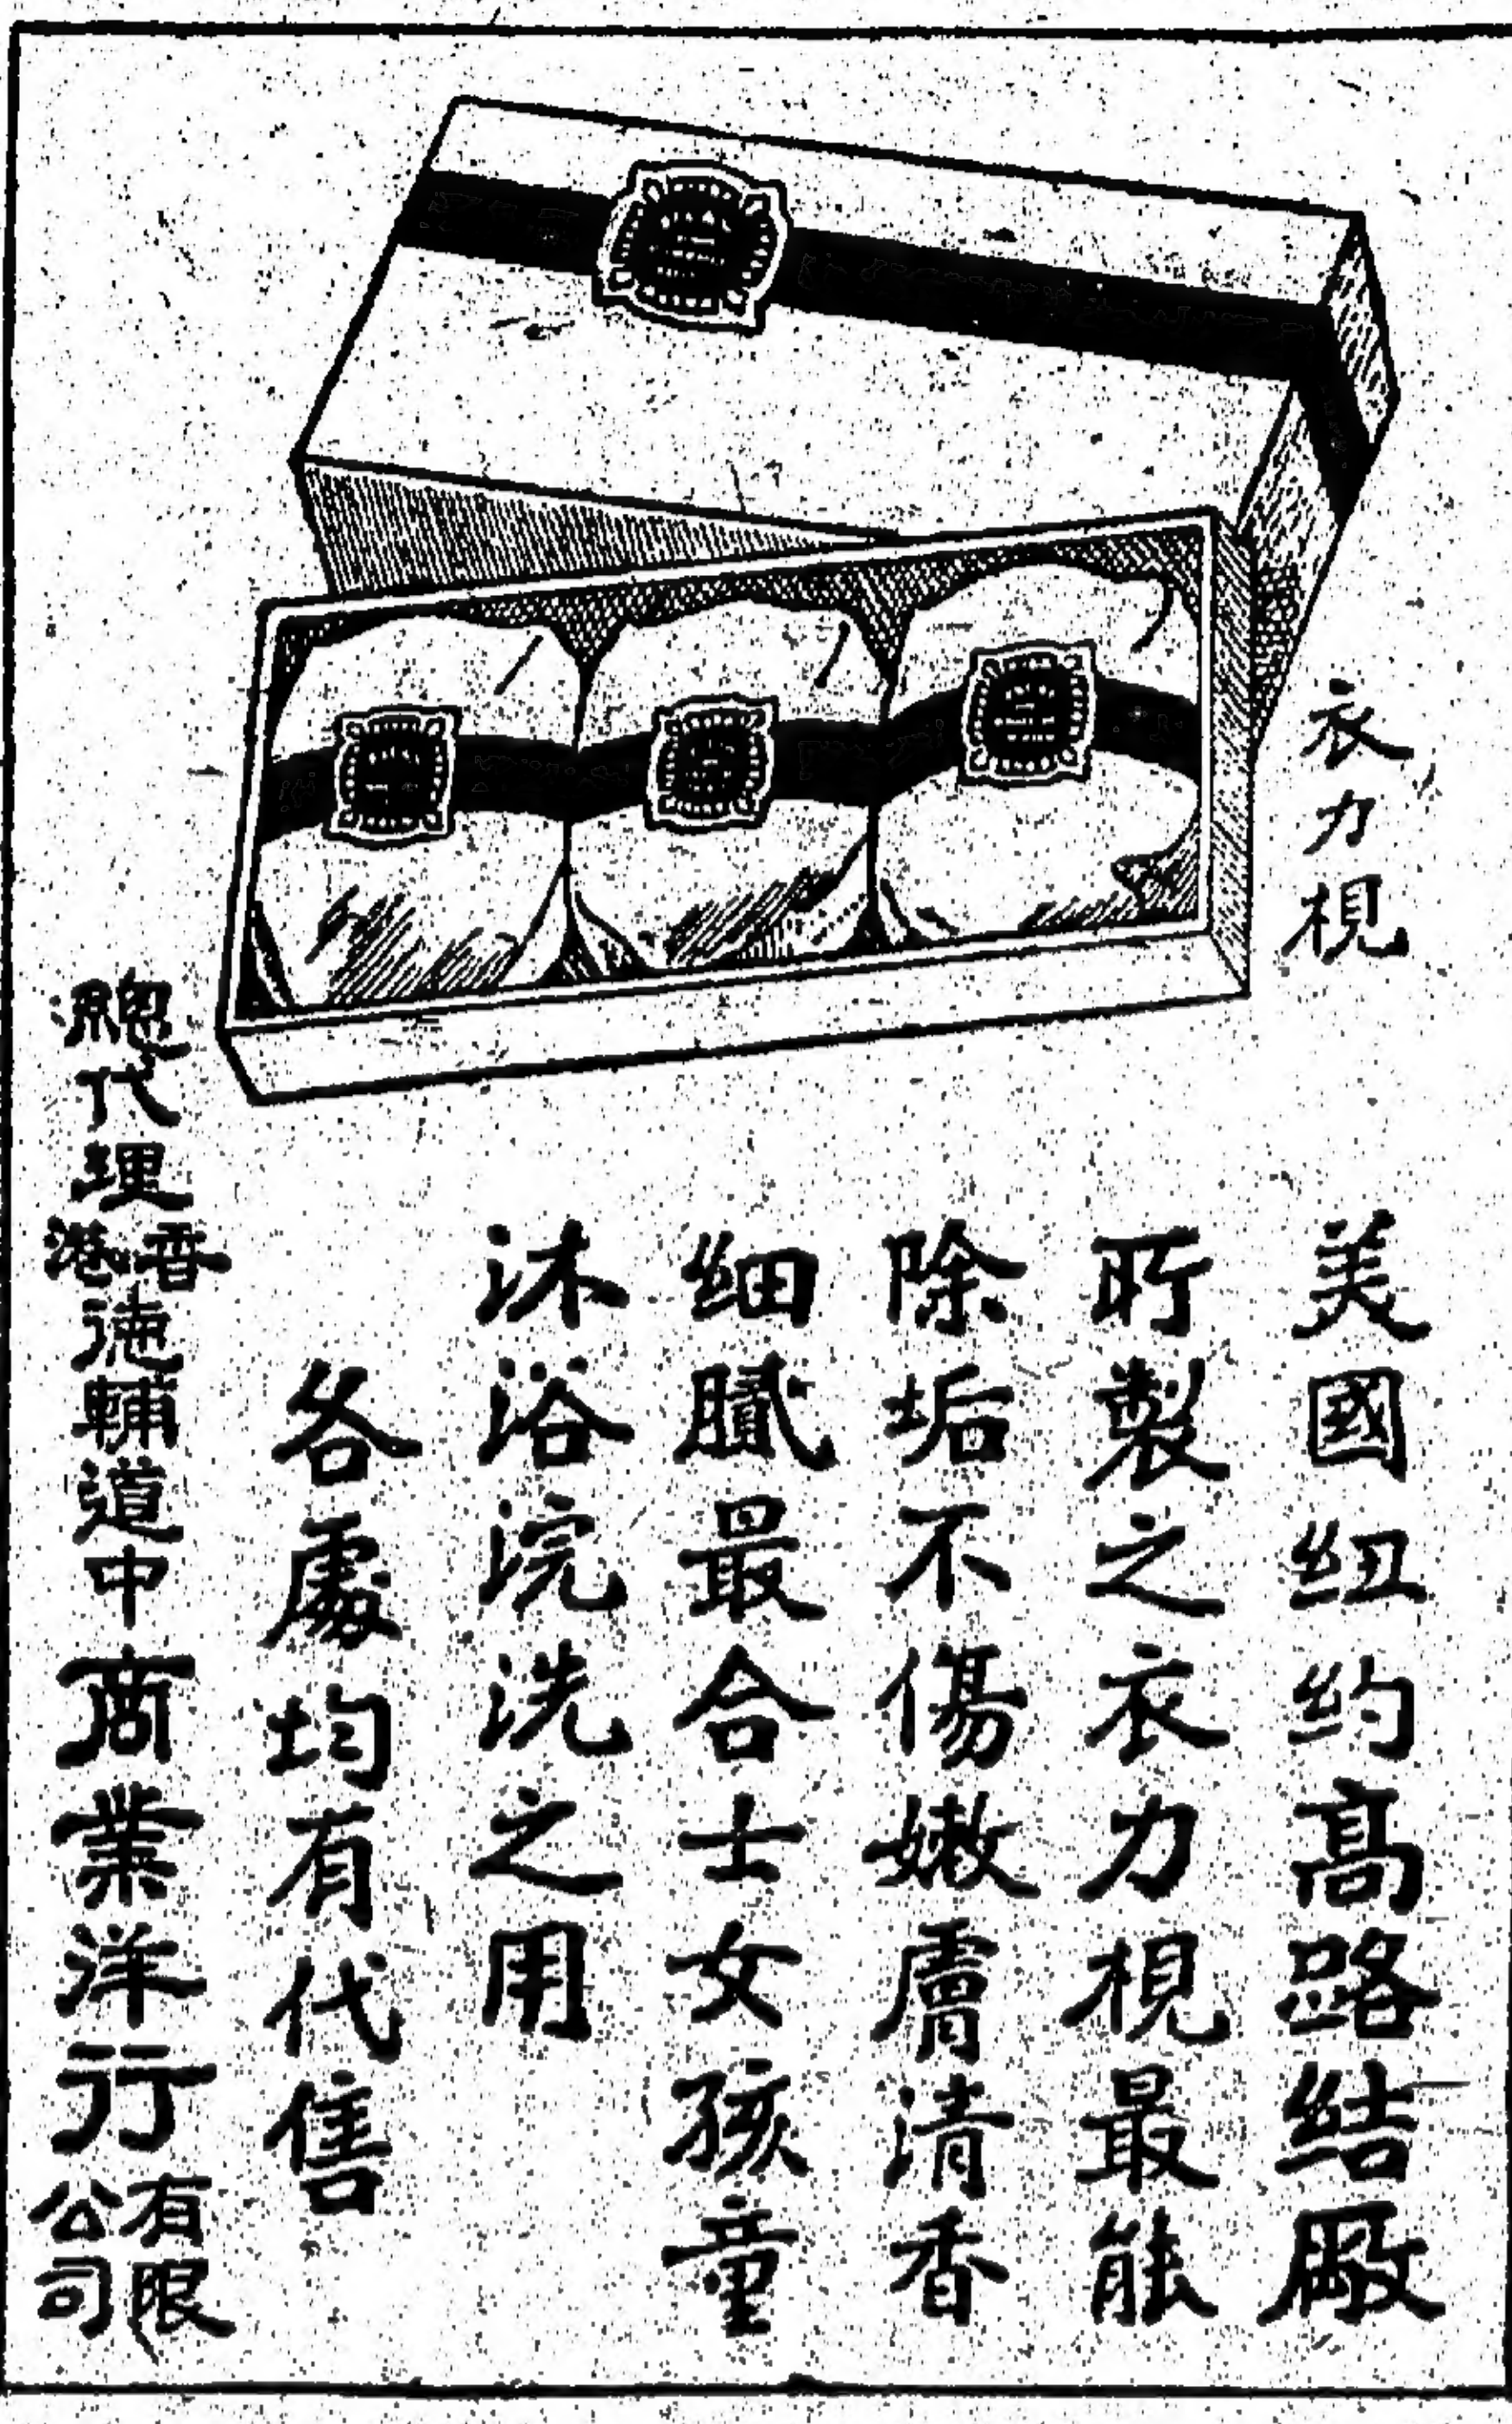 衣力梘
美國纽约高路结廠
所製之衣力梘最能
除垢不傷嫩膚清香
细膩最合士女孩童
沐浴浣洗之用
各處均有代售
總代理香港德輔道中商業洋行有限公司